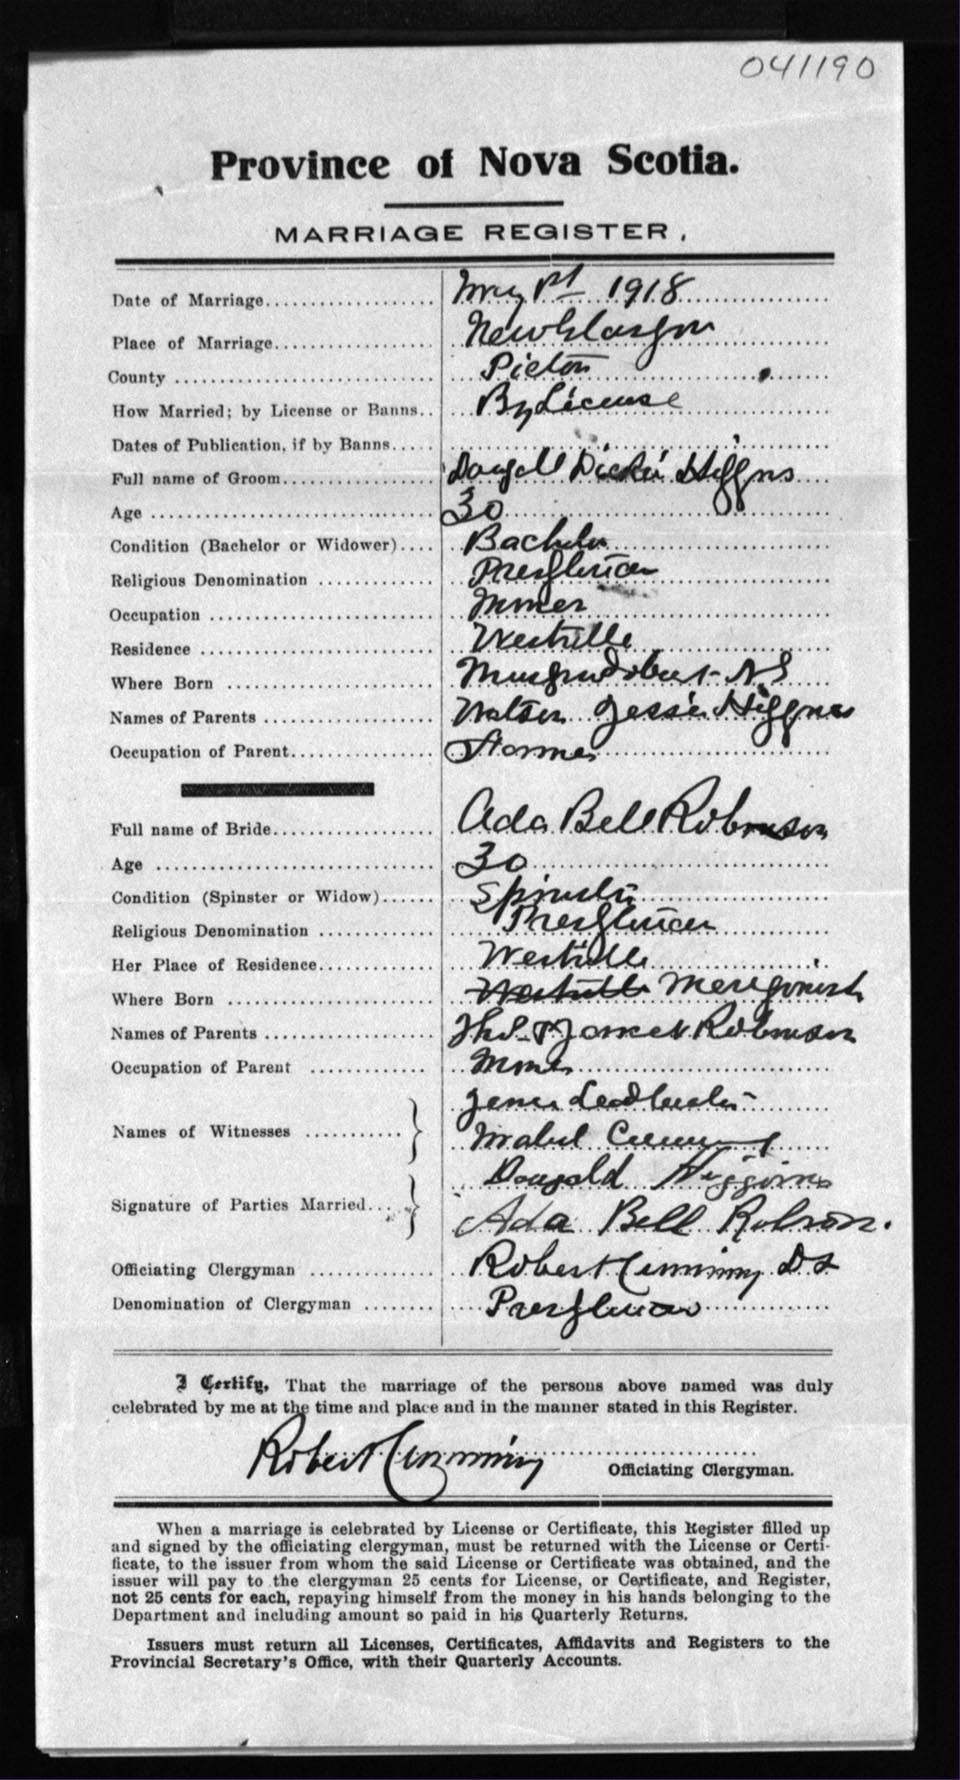 041190
Province of Nova Scotia.
MARRIAGE REGISTER.
Date of Marriage May 1st 1918
Place of Marriage New Glasgow
County Pictou
How Married; by License or Banns By License
Dates of Publication, if by Banns
Full name of Groom Higgns
Age 30
Condition (Bachelor or Widower) Bachelor
Religious Denomination Presbyterian
Occupation Miner
Residence Westville
Where Born N S
Names of Parents Watson Jessie Higgns
Occupation of Parent Farmer
Full name of Bride Ada Bell Robinson
Age 30
Condition (Spinster or Widow) Spinster
Religious Denomination Presbyterian
Her Place of Residence Westville
Where Born Westville Merigomish
Names of Parents & Robinson
Occupation of Parent Miner
Names of Witnesses James
Mabel
Signature of Parties Married Dougald Higgins
Ada Bell Robson.
Officiating Clergyman Robert Cumming
Denomination of Clergyman Presbyterian
I Certify, That the marriage of the persons above named was duly
celebrated by me at the time and place and in the manner stated in this Register.
Robert Cumming
Officiating Clergyman.
When a marriage is celebrated by License or Certificate, this Register filled up
and signed by the officiating clergyman, must be returned with the License or Certi-
ficate, to the issuer from whom the said License or Certificate was obtained, and the
issuer will pay to the clergyman 25 cents for License, or Certificate, and Register,
not 25 cents for each, repaying himself from the money in his hands belonging to the
Department and including amount so paid in his Quarterly Returns.
Issuers must return all Licenses, Certificates, Affidavits and Registers to the
Provincial Secretary's Office, with their Quarterly Accounts.